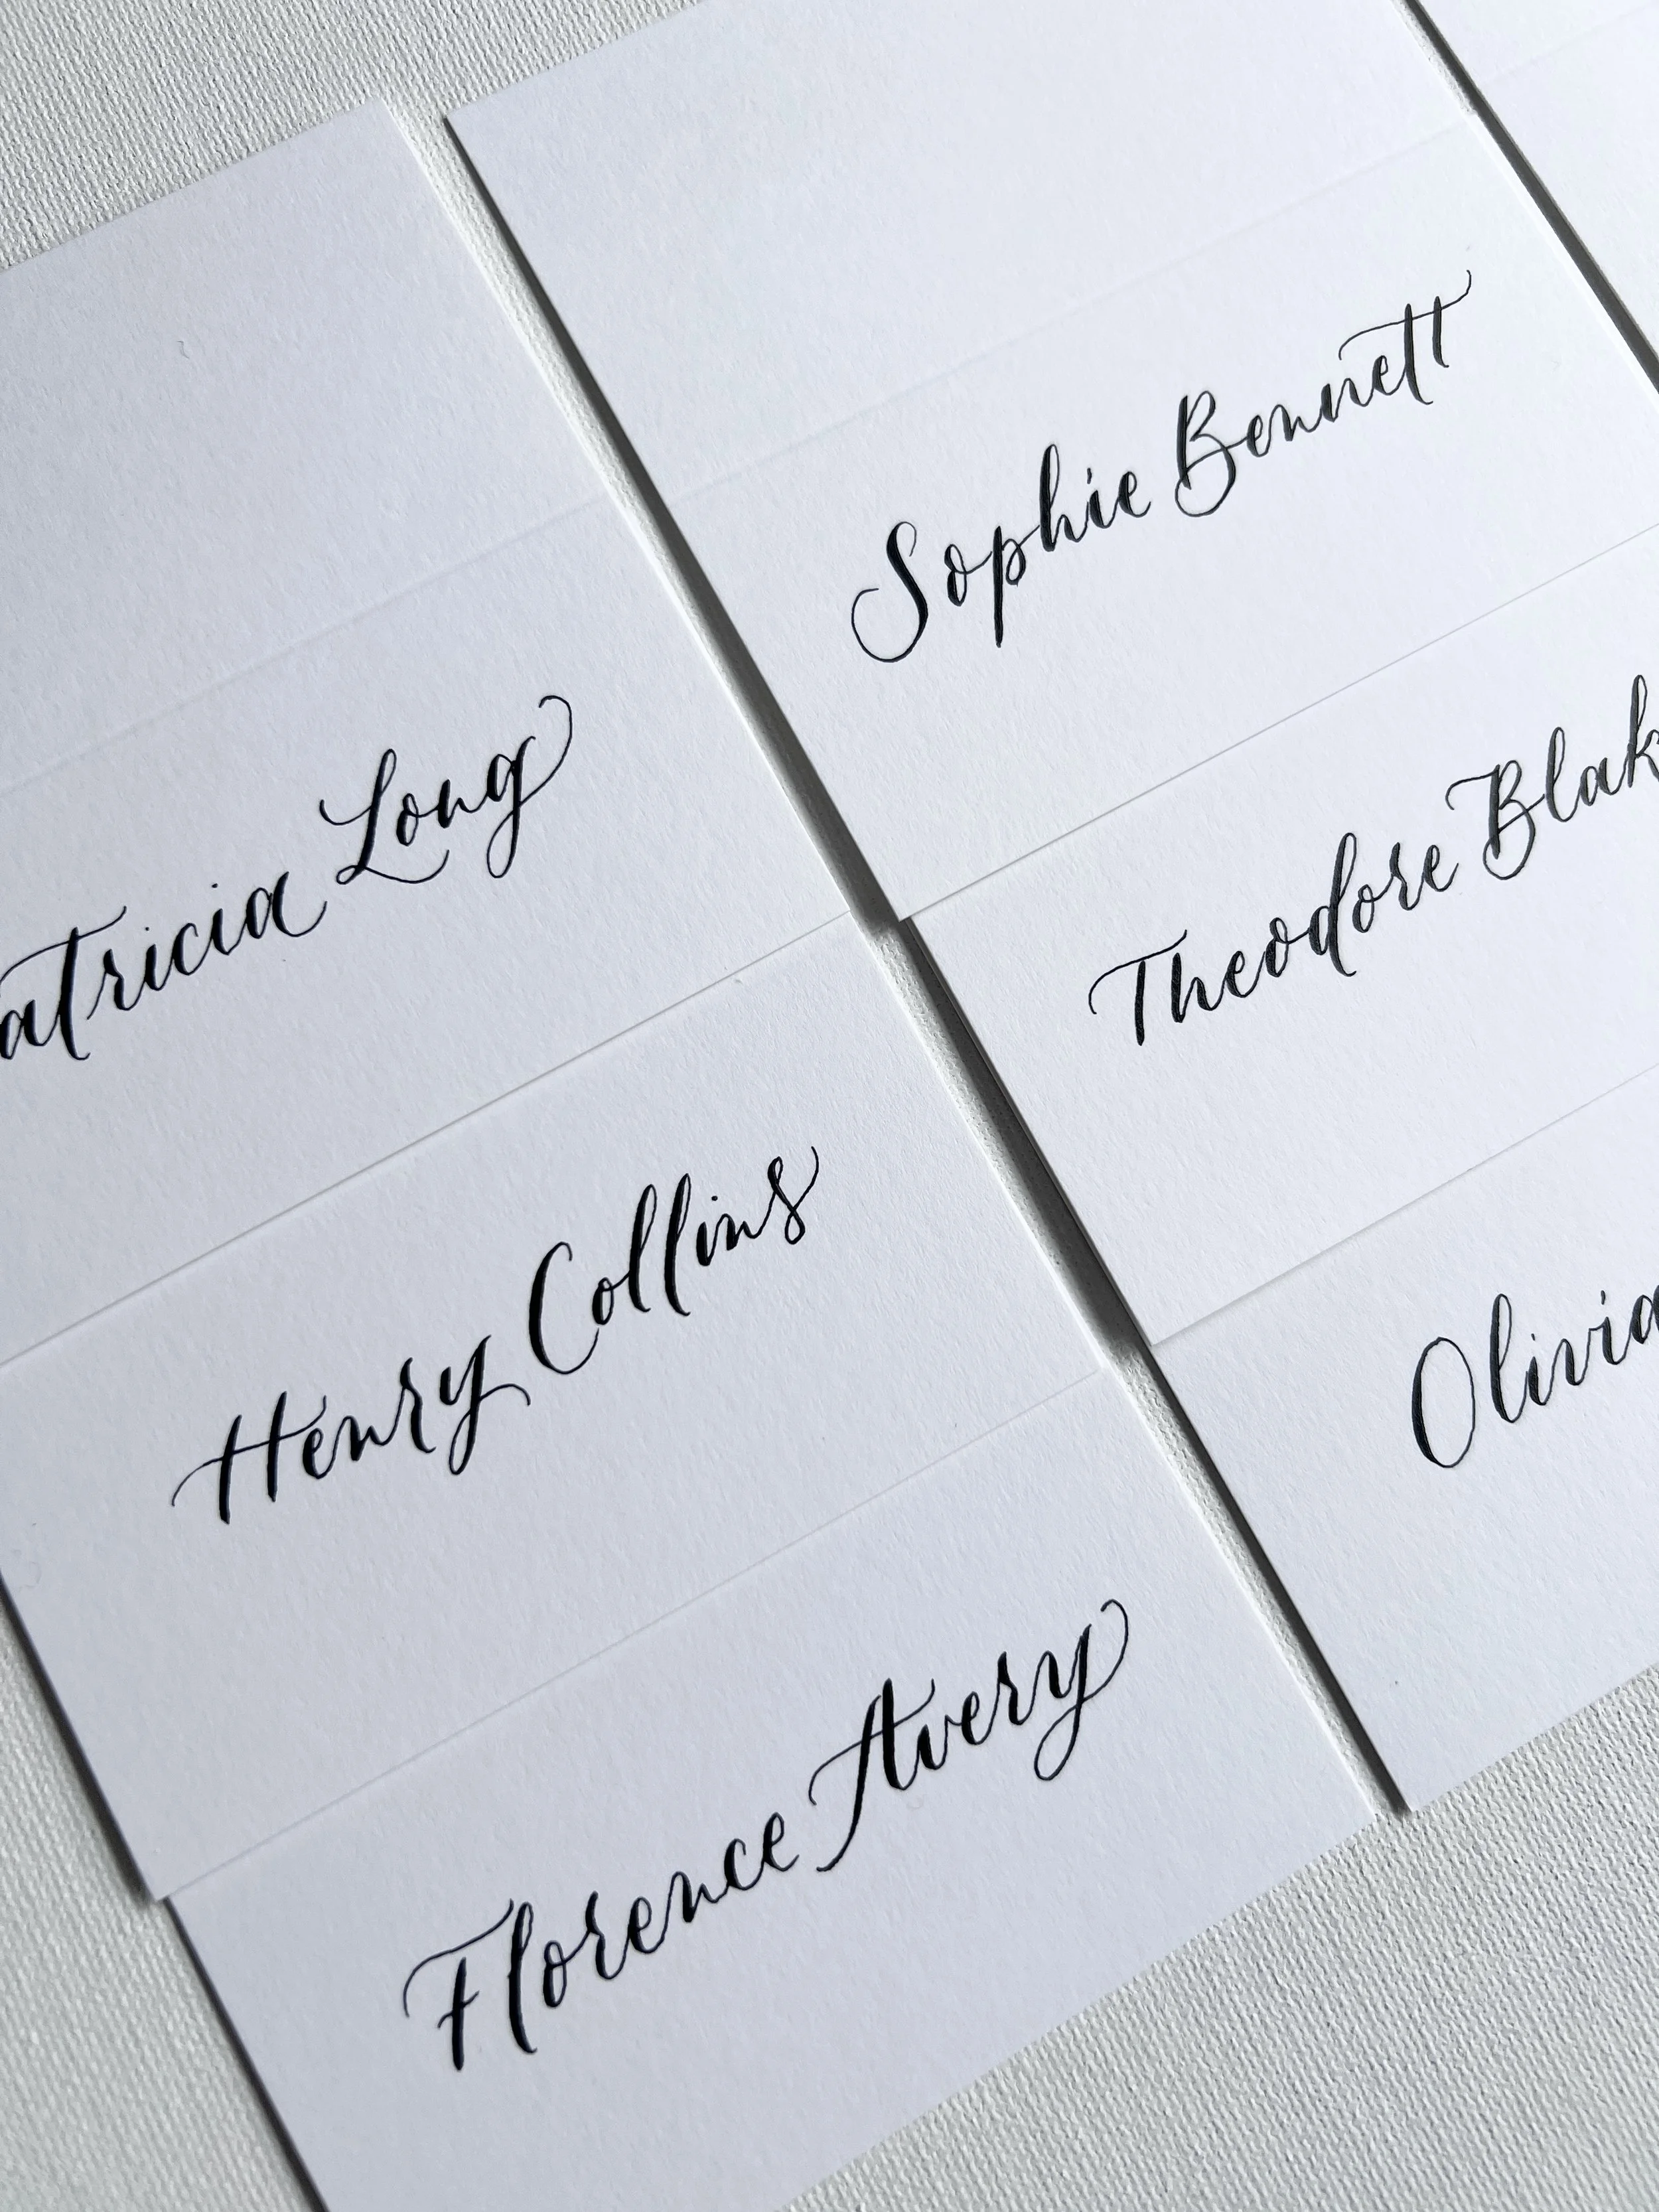 atricia Long
Henry Collins
Florence Avery
Sophie Bennett
Theodore Blak
Olivia